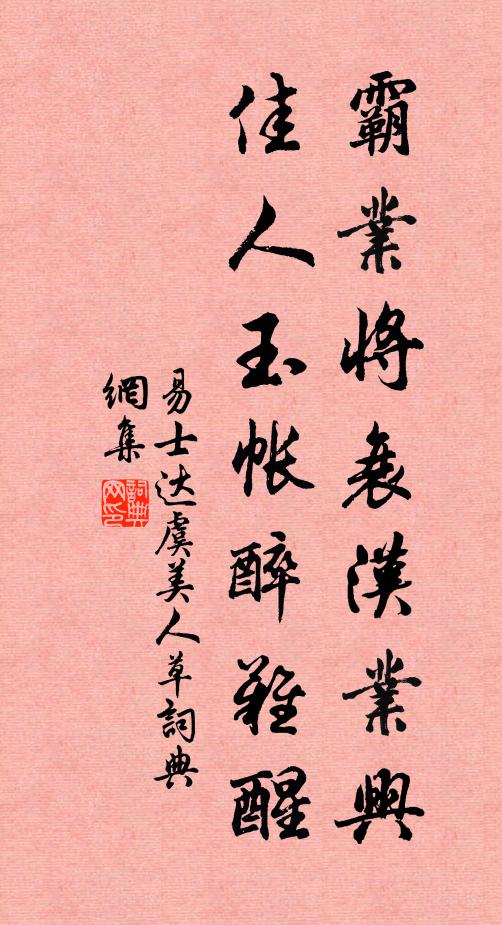 霸業將衰漢業興
佳人玉帳醉難醒
易士达虞美人草詞典
網集
詞典
网印